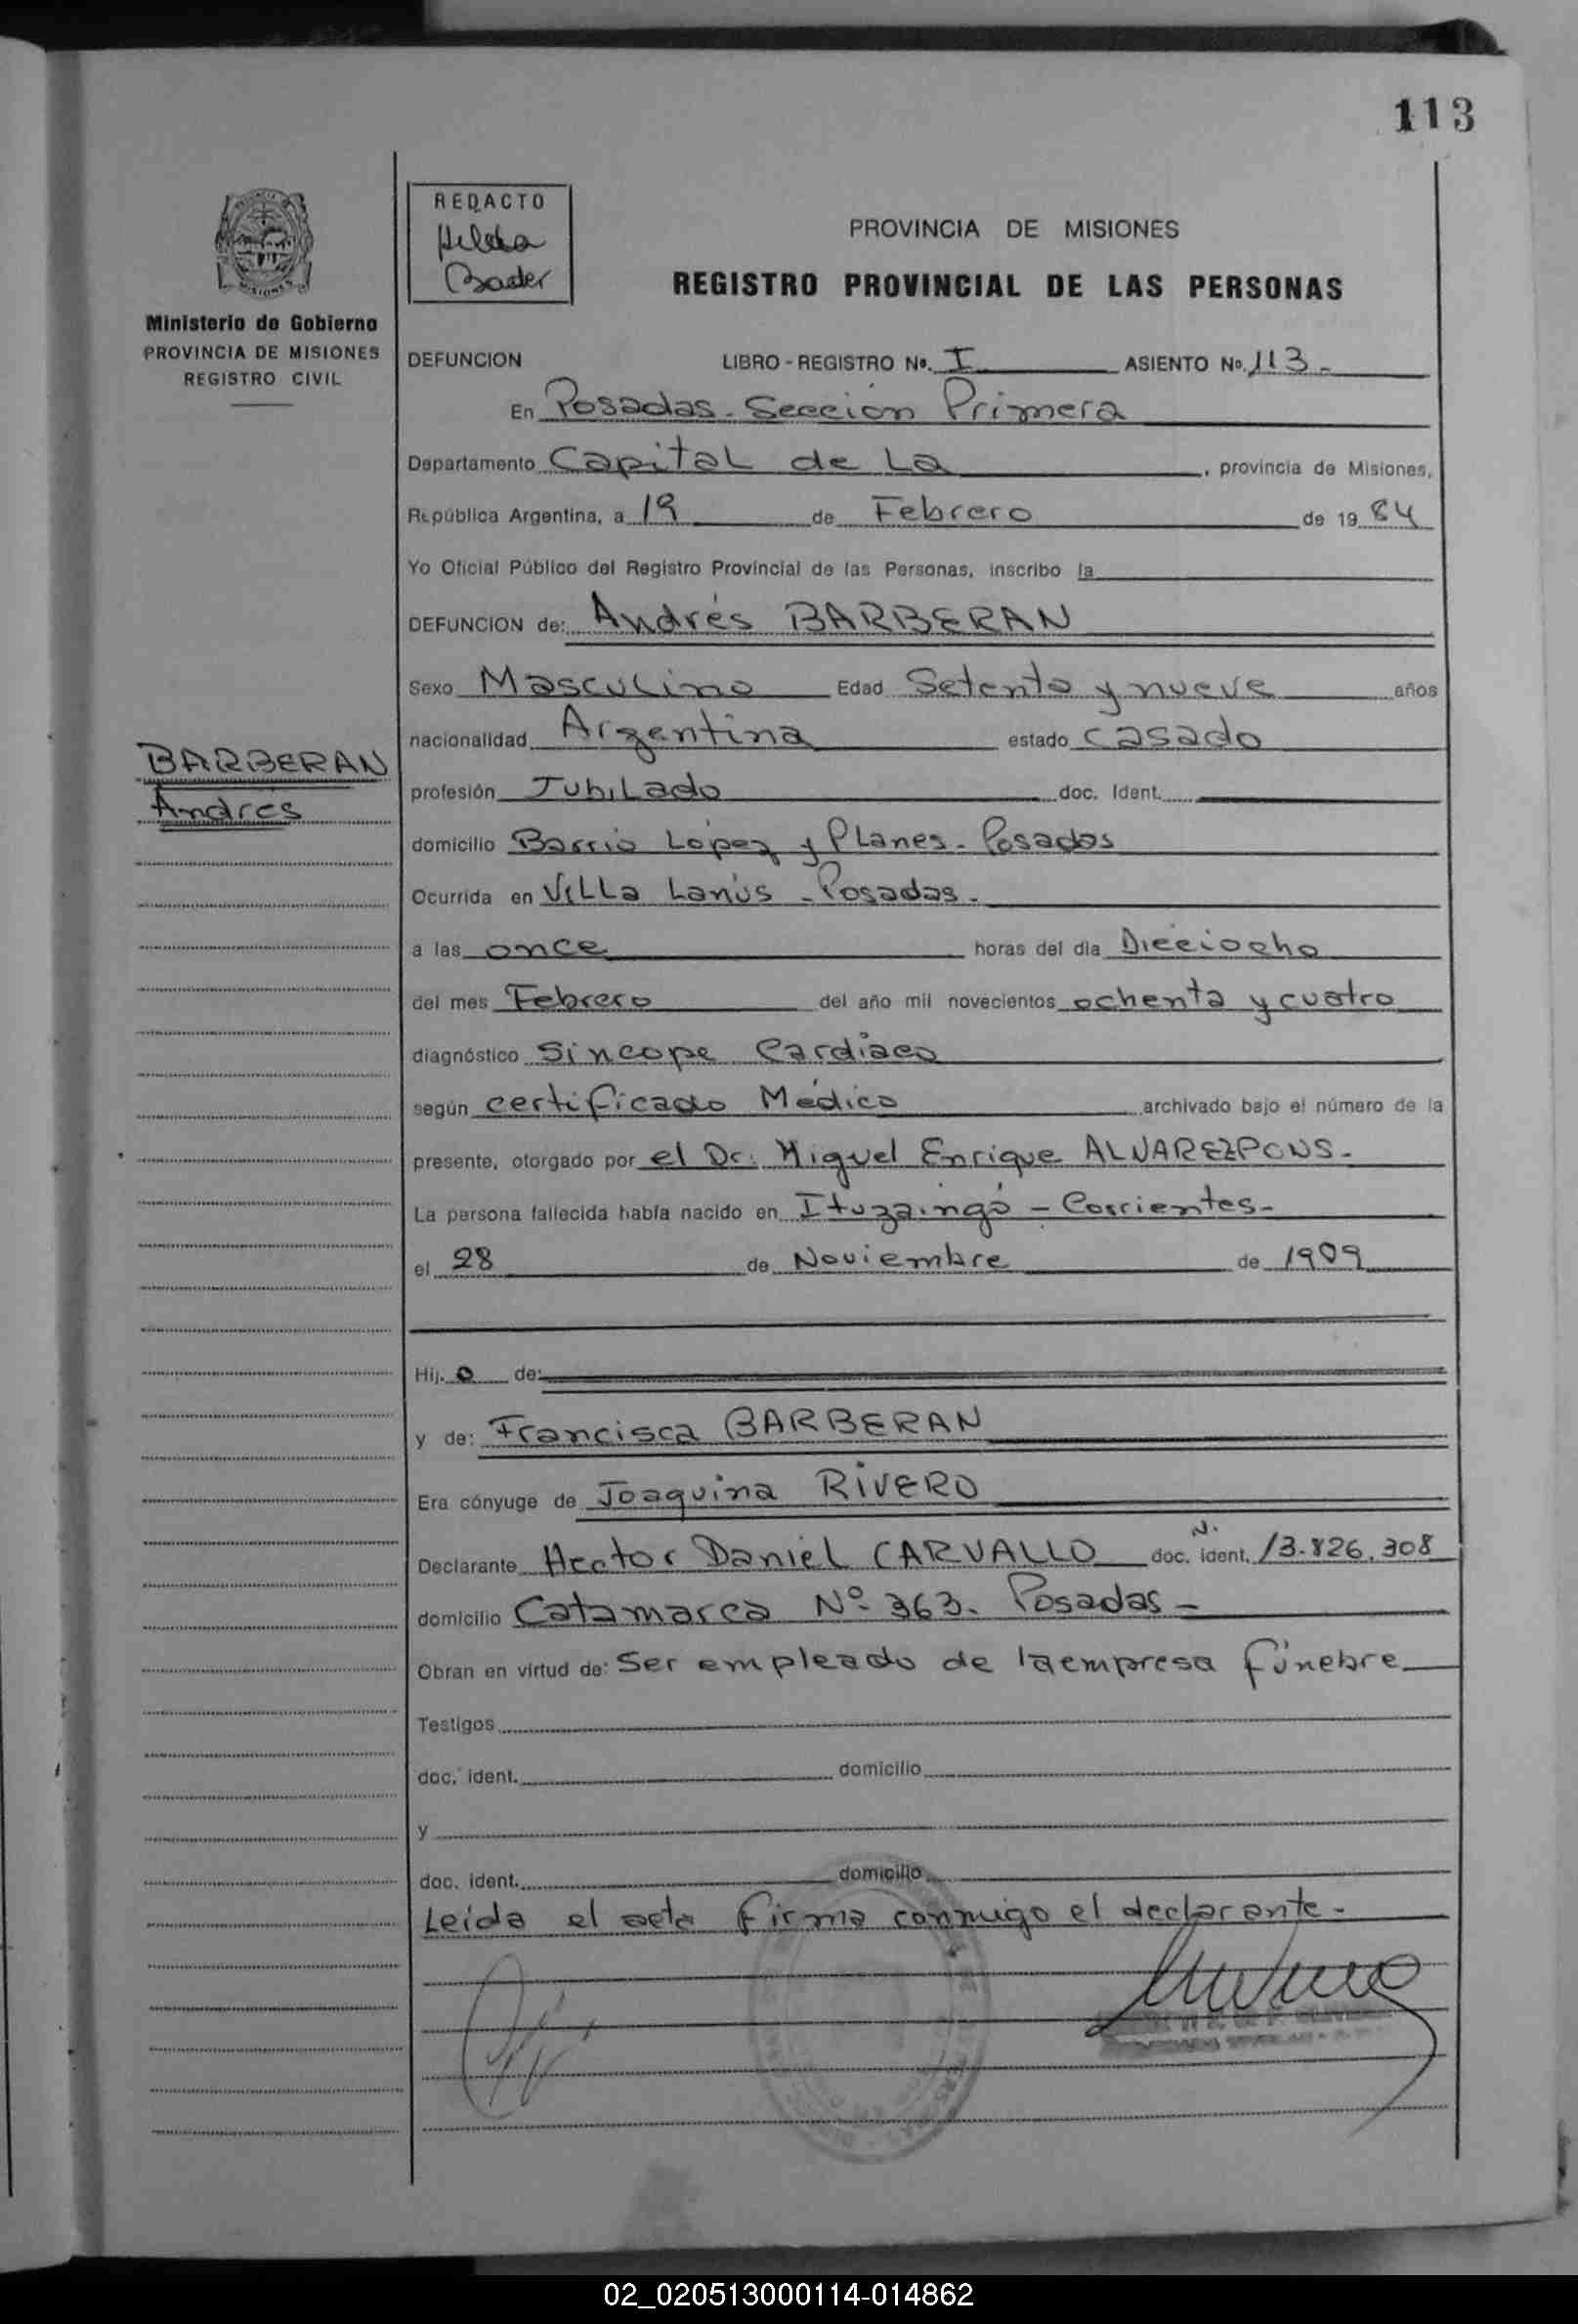 113
REDACTO
Hilda
Bader
PROVINCIA DE MISIONES
REGISTRO PROVINCIAL DE LAS PERSONAS
Ministerio de Gobierno
PROVINCIA DE MISIONES
REGISTRO CIVIL
DEFUNCION LIBRO - REGISTRO Nº. I ASIENTO Nº. 113.-
En Posadas. Sección Primera
Departamento Capital de La , provincia de Misiones,
República Argentina, a 19 de Febrero de 19 84
Yo Oficial Público del Registro Provincial de las Personas, inscribo la
DEFUNCION de: Andrés BARBERAN
Sexo Masculino Edad Setenta y nueve años
nacionalidad Argentina estado casado
BARBERAN
Andrés
profesión Jubilado doc. Ident.
domicilio Barrio López y Planes. Posadas
Ocurrida en Villa Lanús - Posadas.
a las once horas del día Dieciocho
del mes Febrero del año mil novecientos ochenta y cuatro
diagnóstico Sincope Cardíaco
según certificado Médico archivado bajo el número de la
presente, otorgado por el Dr. Miguel Enrique ALVAREZPONS.
La persona fallecida había nacido en Ituzaingó - Corrientes-
el 28 de Noviembre de 1909
Hij. o de:
y de: Francisca BARBERAN
Era cónyuge de Joaquina RIVERO
Declarante Hector Daniel CARVALLO doc. N. ident. 13.826.308
domicilio Catamarca Nº 363. Posadas -
Obran en virtud de: Ser empleado de la empresa fúnebre
Testigos
doc. ident. domicilio
y
doc. ident. domicilio
Leida el acta firma conmigo el declarante.
02_020513000114-014862